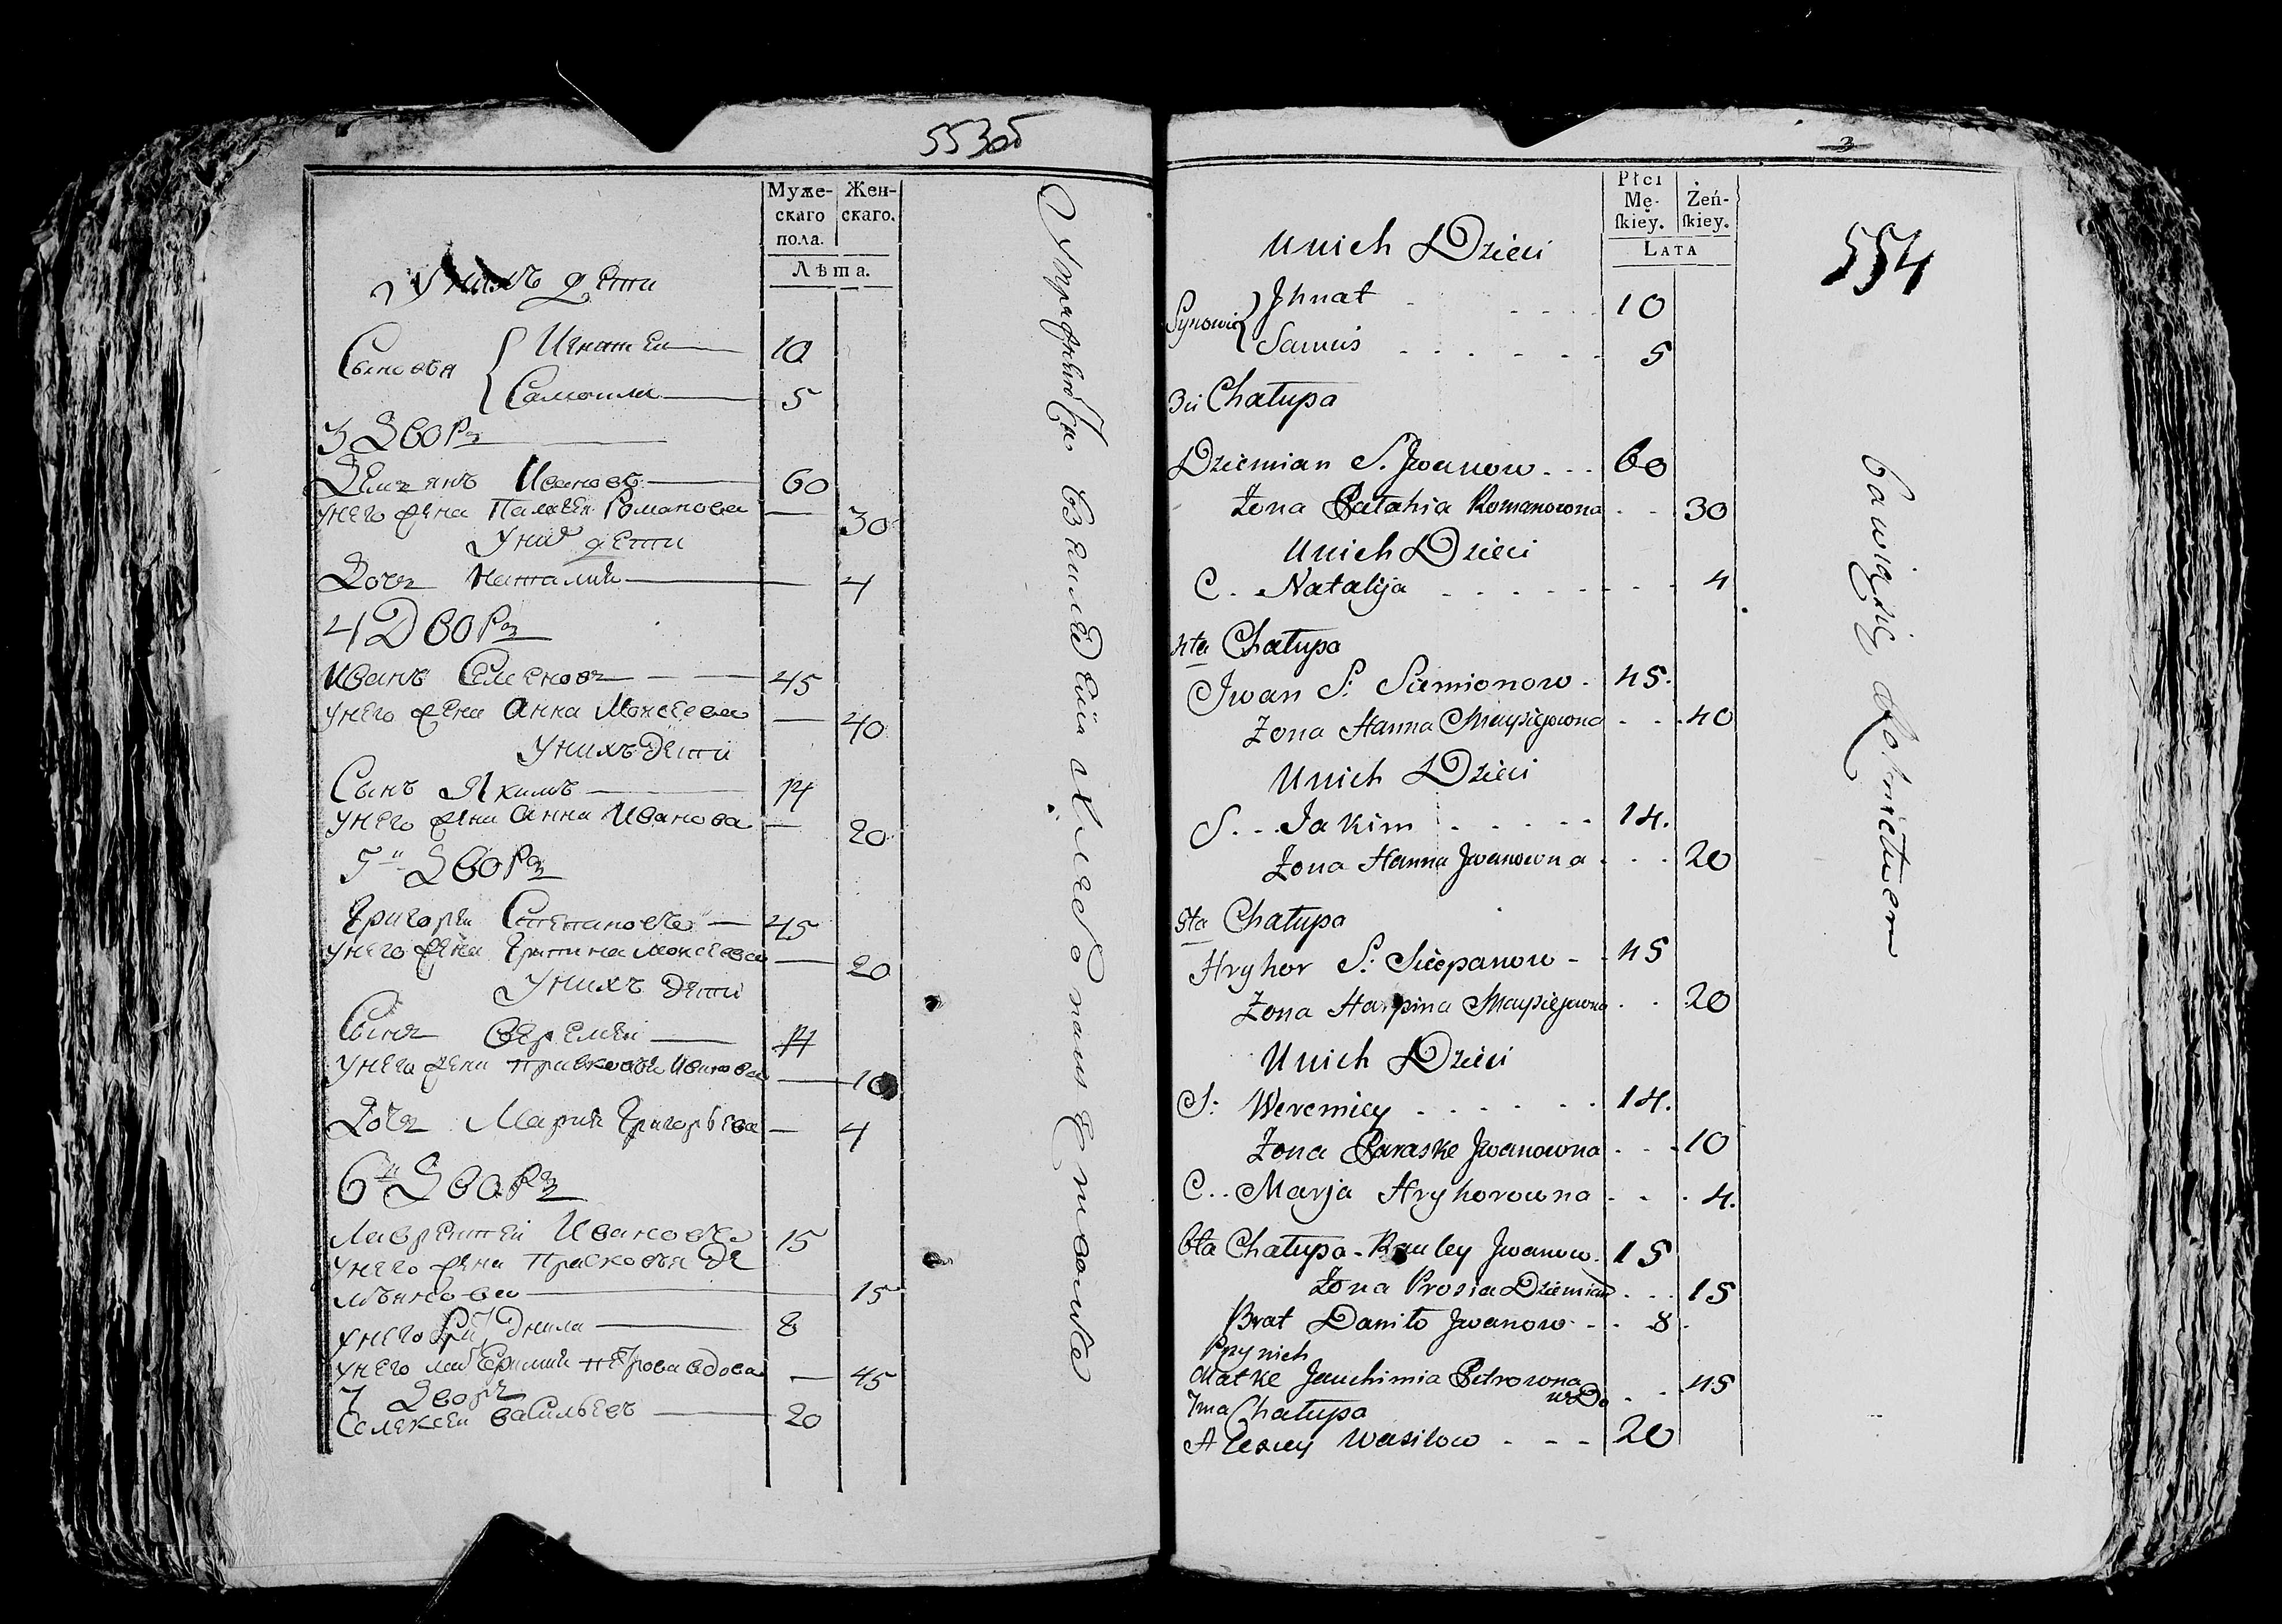 553об
Муже-
скаго
пола.
Жен-
скаго.
Лѣта.
У нихъ дети
Сыновя
Игнатеи 10
Самоили 5
3 Дворъ
Демянъ Ивановъ 60
У него жена Палагея Романова 30
У них дети
Дочь Наталия 4
4 Дворъ
Иванъ Семеновъ 45
У него жена Анна Моисеева 40
У нихъ дети
Сынъ Якимъ 14
У него жена Анна Иванова 20
5й Дворъ
Григореи Степановъ 45
У него жена Моисеева 20
У нихъ дети
Сынъ Веремеи 14
У него жена Прасковя Иванова 10
Дочь Мария Григорьева 4
6й Дворъ
Лаврентеи Ивановъ 15
У него жена Прасковя Де
мьянова 15
У него Днила 8
У него Петрова вдова 45
7 Дворъ
Васильевъ 20
хлебопашество
3
554
Płci
Mę-
ſkiey.
Żeń-
ſkiey.
LATA
U nich Dzieci
Synowie
Jhnat 10
Samuś 5
3ia Chałupa
Dziemian S. Jwanow 60
Żona Pałahia Romanowna 30
U nich Dzieci
C. Natalija 4
4ta Chałupa
Jwan S: Siemionow 45.
Żona Hanna Maysiejowna 40
U nich Dzieci
S. Jakim 14.
Żona Hanna Jwanowna 20
5ta Chałupa
Hryhor S: Sciepanow 45
Żona Harpina Maysiejowna 20
U nich Dzieci
S: Weremiey 14.
Żona Paraske Jwanowna 10
C. Marja Hryhorowna 4.
6ta Chałupa Jwanow 15
Żona Prosia Dziemian 15
Brat Daniło Jwanow 8
Przy nich
Matke Jauchimia Petrowna
wdo 45
7ma Chałupa
Alexiey Wasilow 20
bawią się Rolnictwem